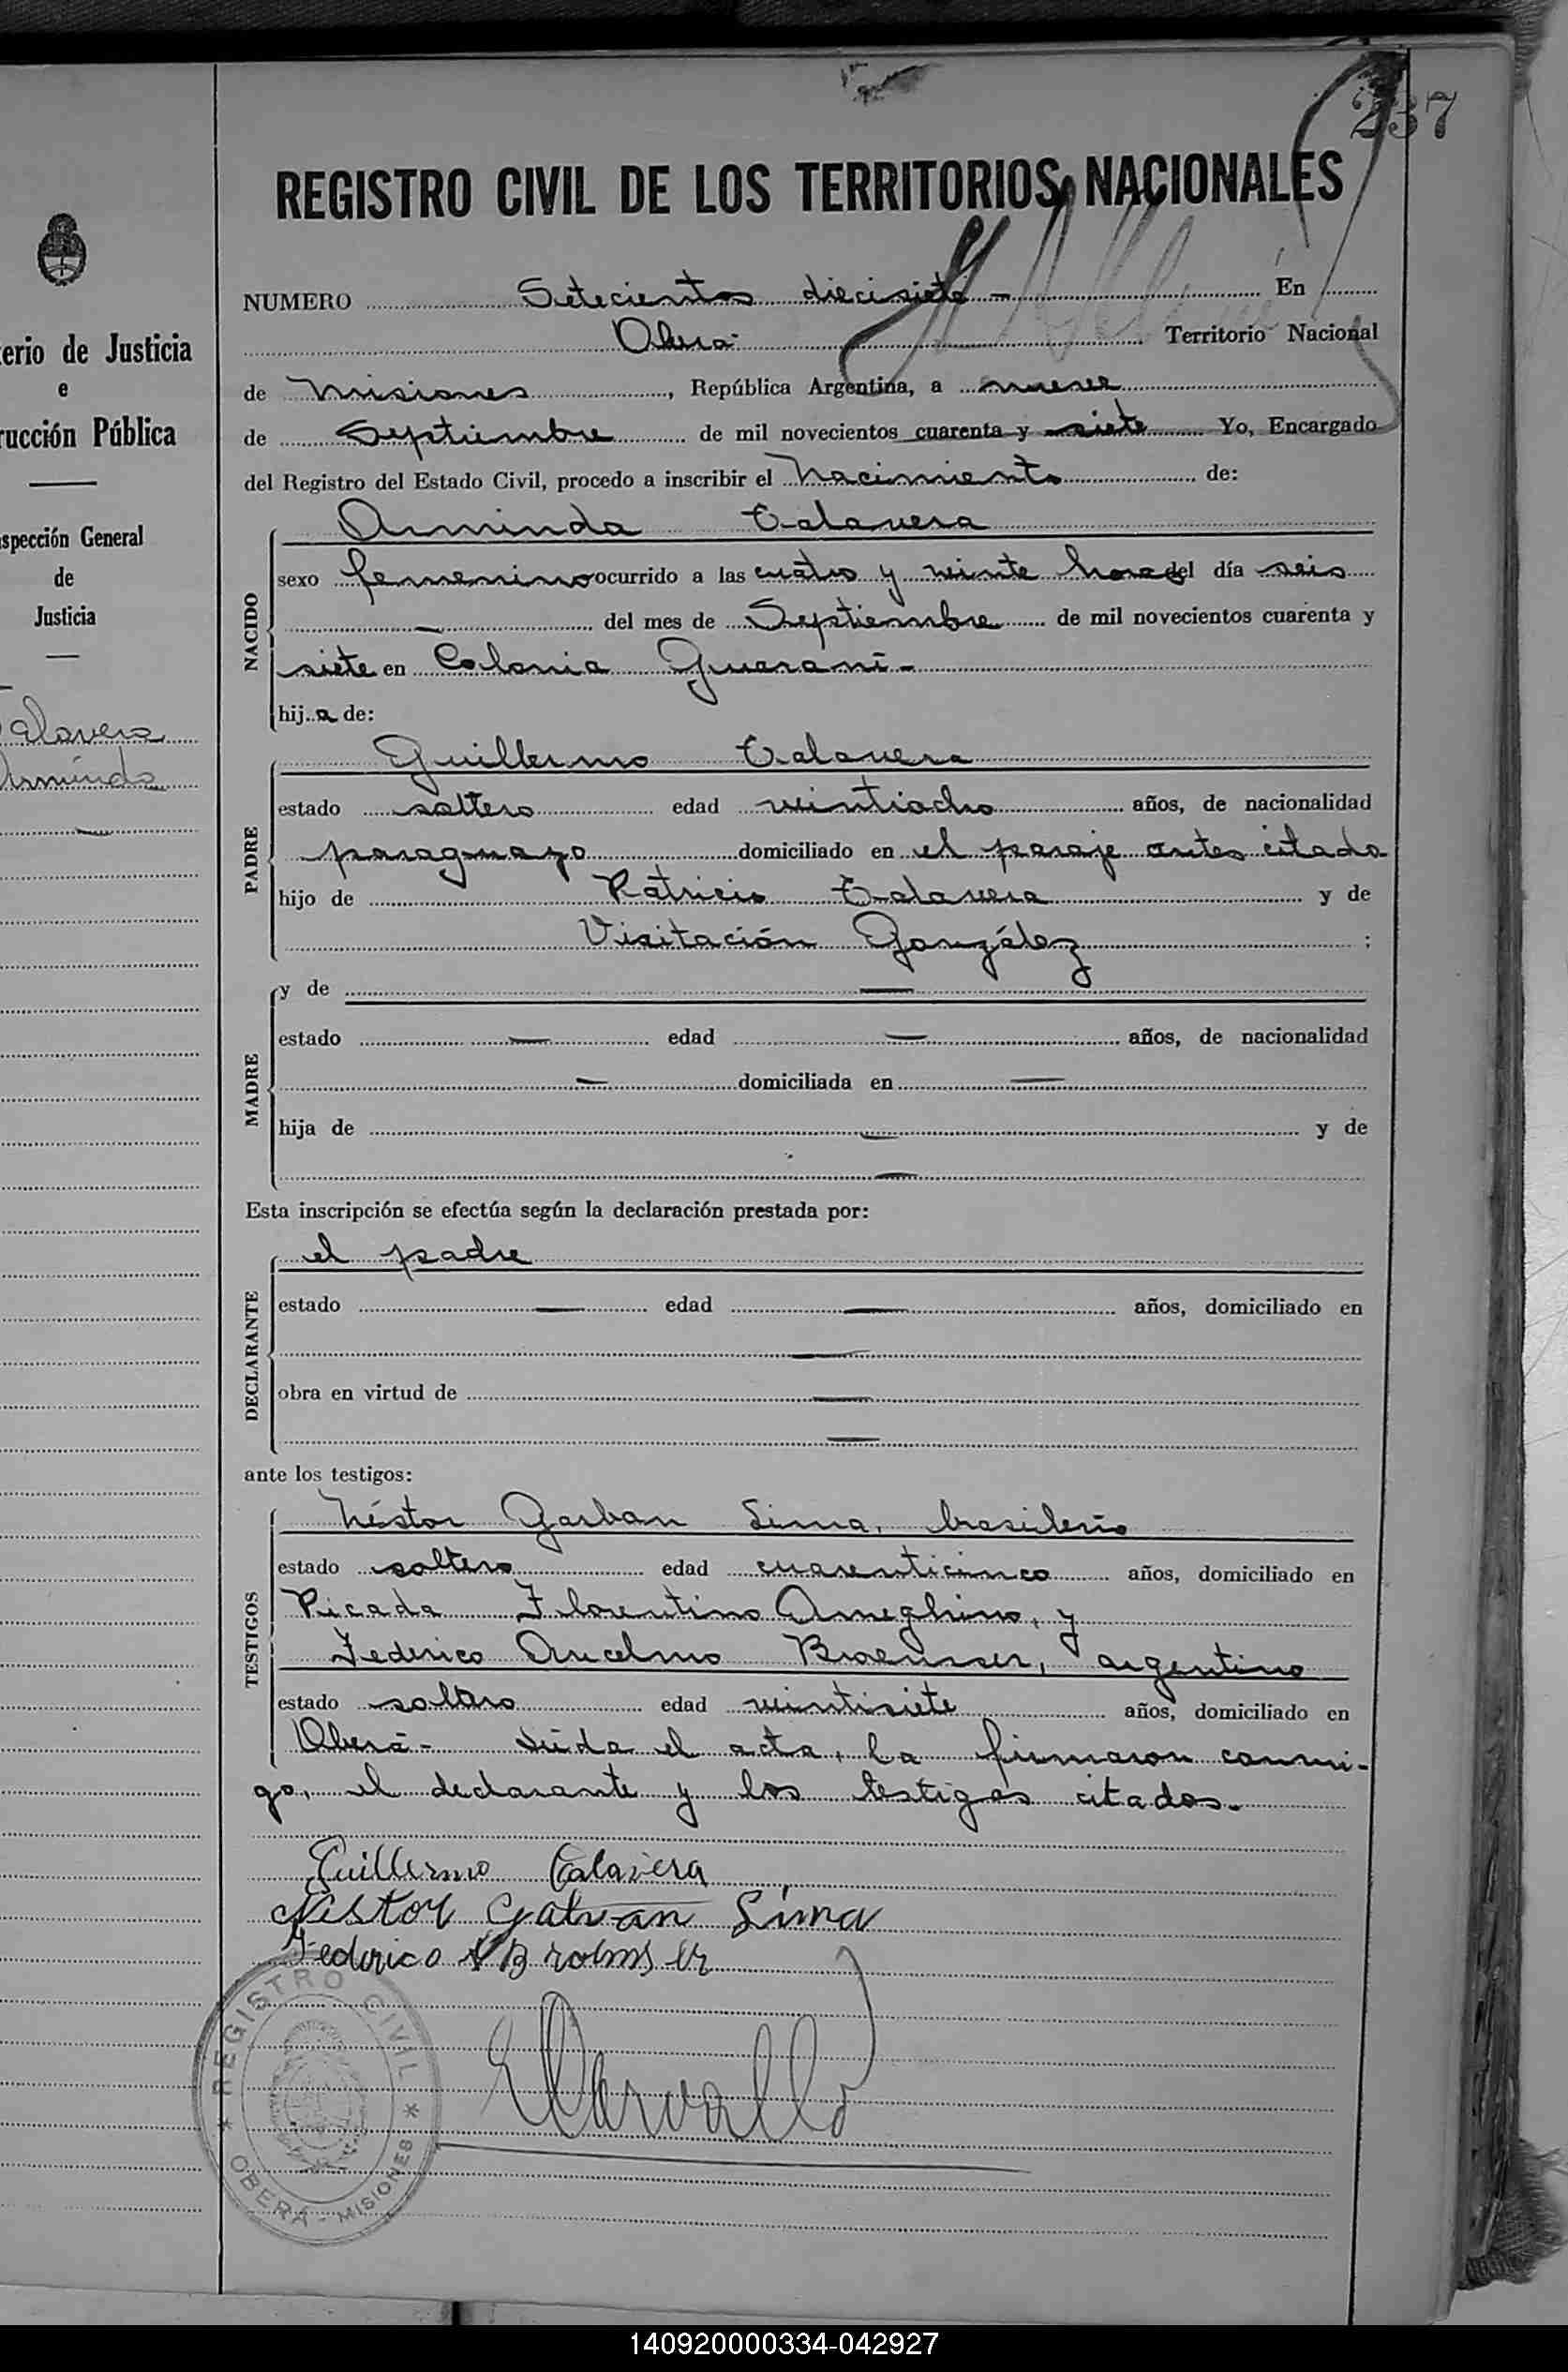 237
REGISTRO CIVIL DE LOS TERRITORIOS NACIONALES
NUMERO Setecientos diecisiete - En
Oberá Territorio Nacional
de Misiones, República Argentina, a nueve
de Septiembre de mil novecientos cuarenta y siete Yo, Encargado
del Registro del Estado Civil, procedo a inscribir el Nacimiento de:
NACIDO
Arminda Talavera
sexo femenino ocurrido a las cuatro y veinte horas del día seis
del mes de Septiembre de mil novecientos cuarenta y
siete en Colonia Guaraní -
hija de:
PADRE
Guillermo Talavera
estado soltero edad veintiocho años, de nacionalidad
paraguayo domiciliado en el paraje antes citado
hijo de Patricio Talavera y de
Visitación González ;
MADRE
y de —
estado — edad — años, de nacionalidad
— domiciliada en —
hija de — y de
—
Esta inscripción se efectúa según la declaración prestada por:
DECLARANTE
el padre
estado — edad — años, domiciliado en
—
obra en virtud de —
—
ante los testigos:
TESTIGOS
Néstor Garban Lima, brasileño
estado soltero edad cuarenticinco años, domiciliado en
Picada Florentino Ameghino, y
Federico Ancelmo argentino
estado soltero edad veintisiete años, domiciliado en
Oberá - Leída el acta, la firmaron conmi-
go, el declarante y los testigos citados.
Guillermo Talavera
Nestor Galvan Lima
Federico A
REGISTRO CIVIL
OBERÁ - MISIONES
terio de Justicia
e
rucción Pública
spección General
de
Justicia
Talavera
Arminda
—
140920000334-042927